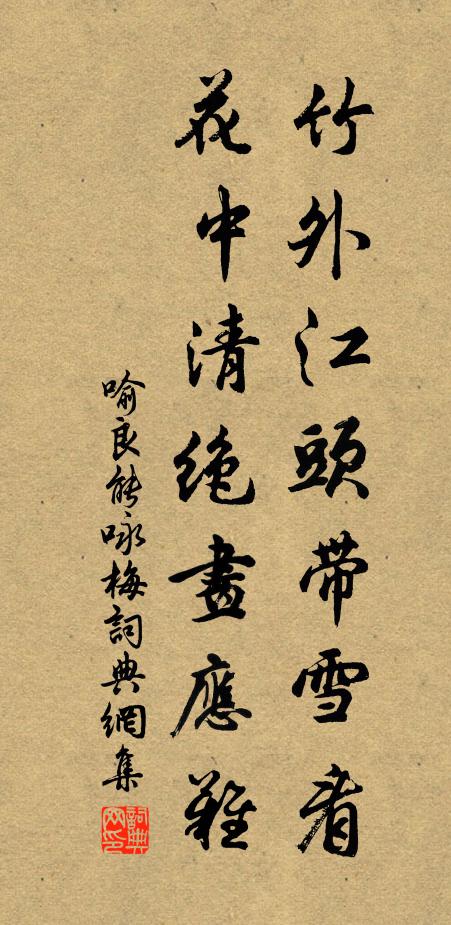 竹外江頭帶雪看
花中清絶畫應難
喻良能咏梅詞典網集
詞典网印